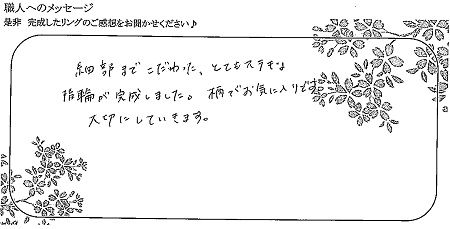 職人へのメッセージ
是非 完成したリングのご感想をお聞かせください♪
細部までこだわった、とてもステキな
指輪が完成しました。柄もお気に入りです。
大切にしていきます。